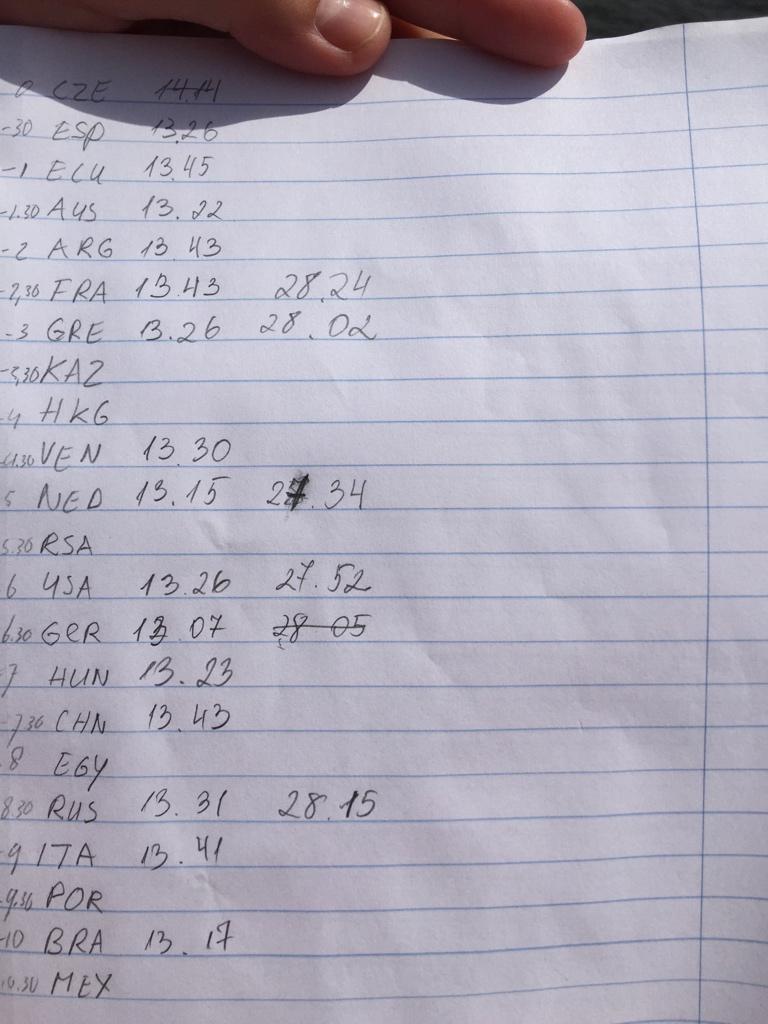 0 CZE 14.14
-30 ESP 13.26
-1 ECU 13.45
-1.30 AUS 13.22
-2 ARG 13.43
-2,30 FRA 13.43 28.24
-3 GRE 13.26 28.02
-3,30 KAZ
-4 HKG
-4.30 VEN 13.30
5 NED 13.15 27.34
5.30 RSA
6 USA 13.26 27.52
6.30 GER 13.07 28 05
-7 HUN 13.23
-7 30 CHN 13.43
8 EGY
8 30 RUS 13.31 28.15
-9 ITA 13.41
-9.30 POR
-10 BRA 13.17
10.30 MEX